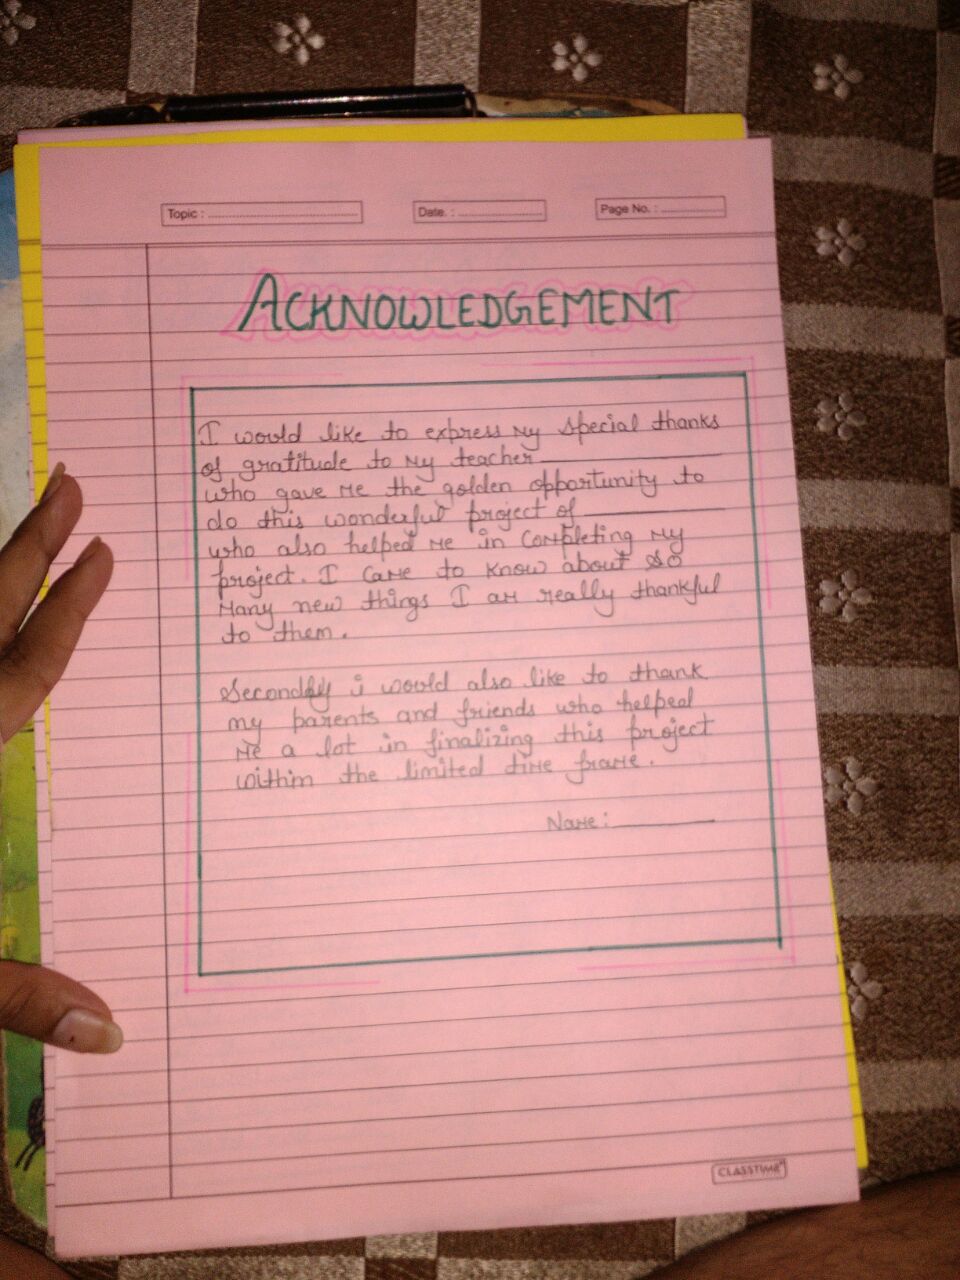 Topic : ................
Date. : ................
Page No. : ................
ACKNOWLEDGEMENT
I would like to express my special thanks
of gratitude to my teacher ________
who gave me the golden opportunity to
do this wonderful project of ________
who also helped me in completing my
project. I came to know about so
many new things I am really thankful
to them.
Secondly i would also like to thank
my parents and friends who helped
me a lot in finalizing this project
within the limited time frame.
Name: ________
CLASSTIME